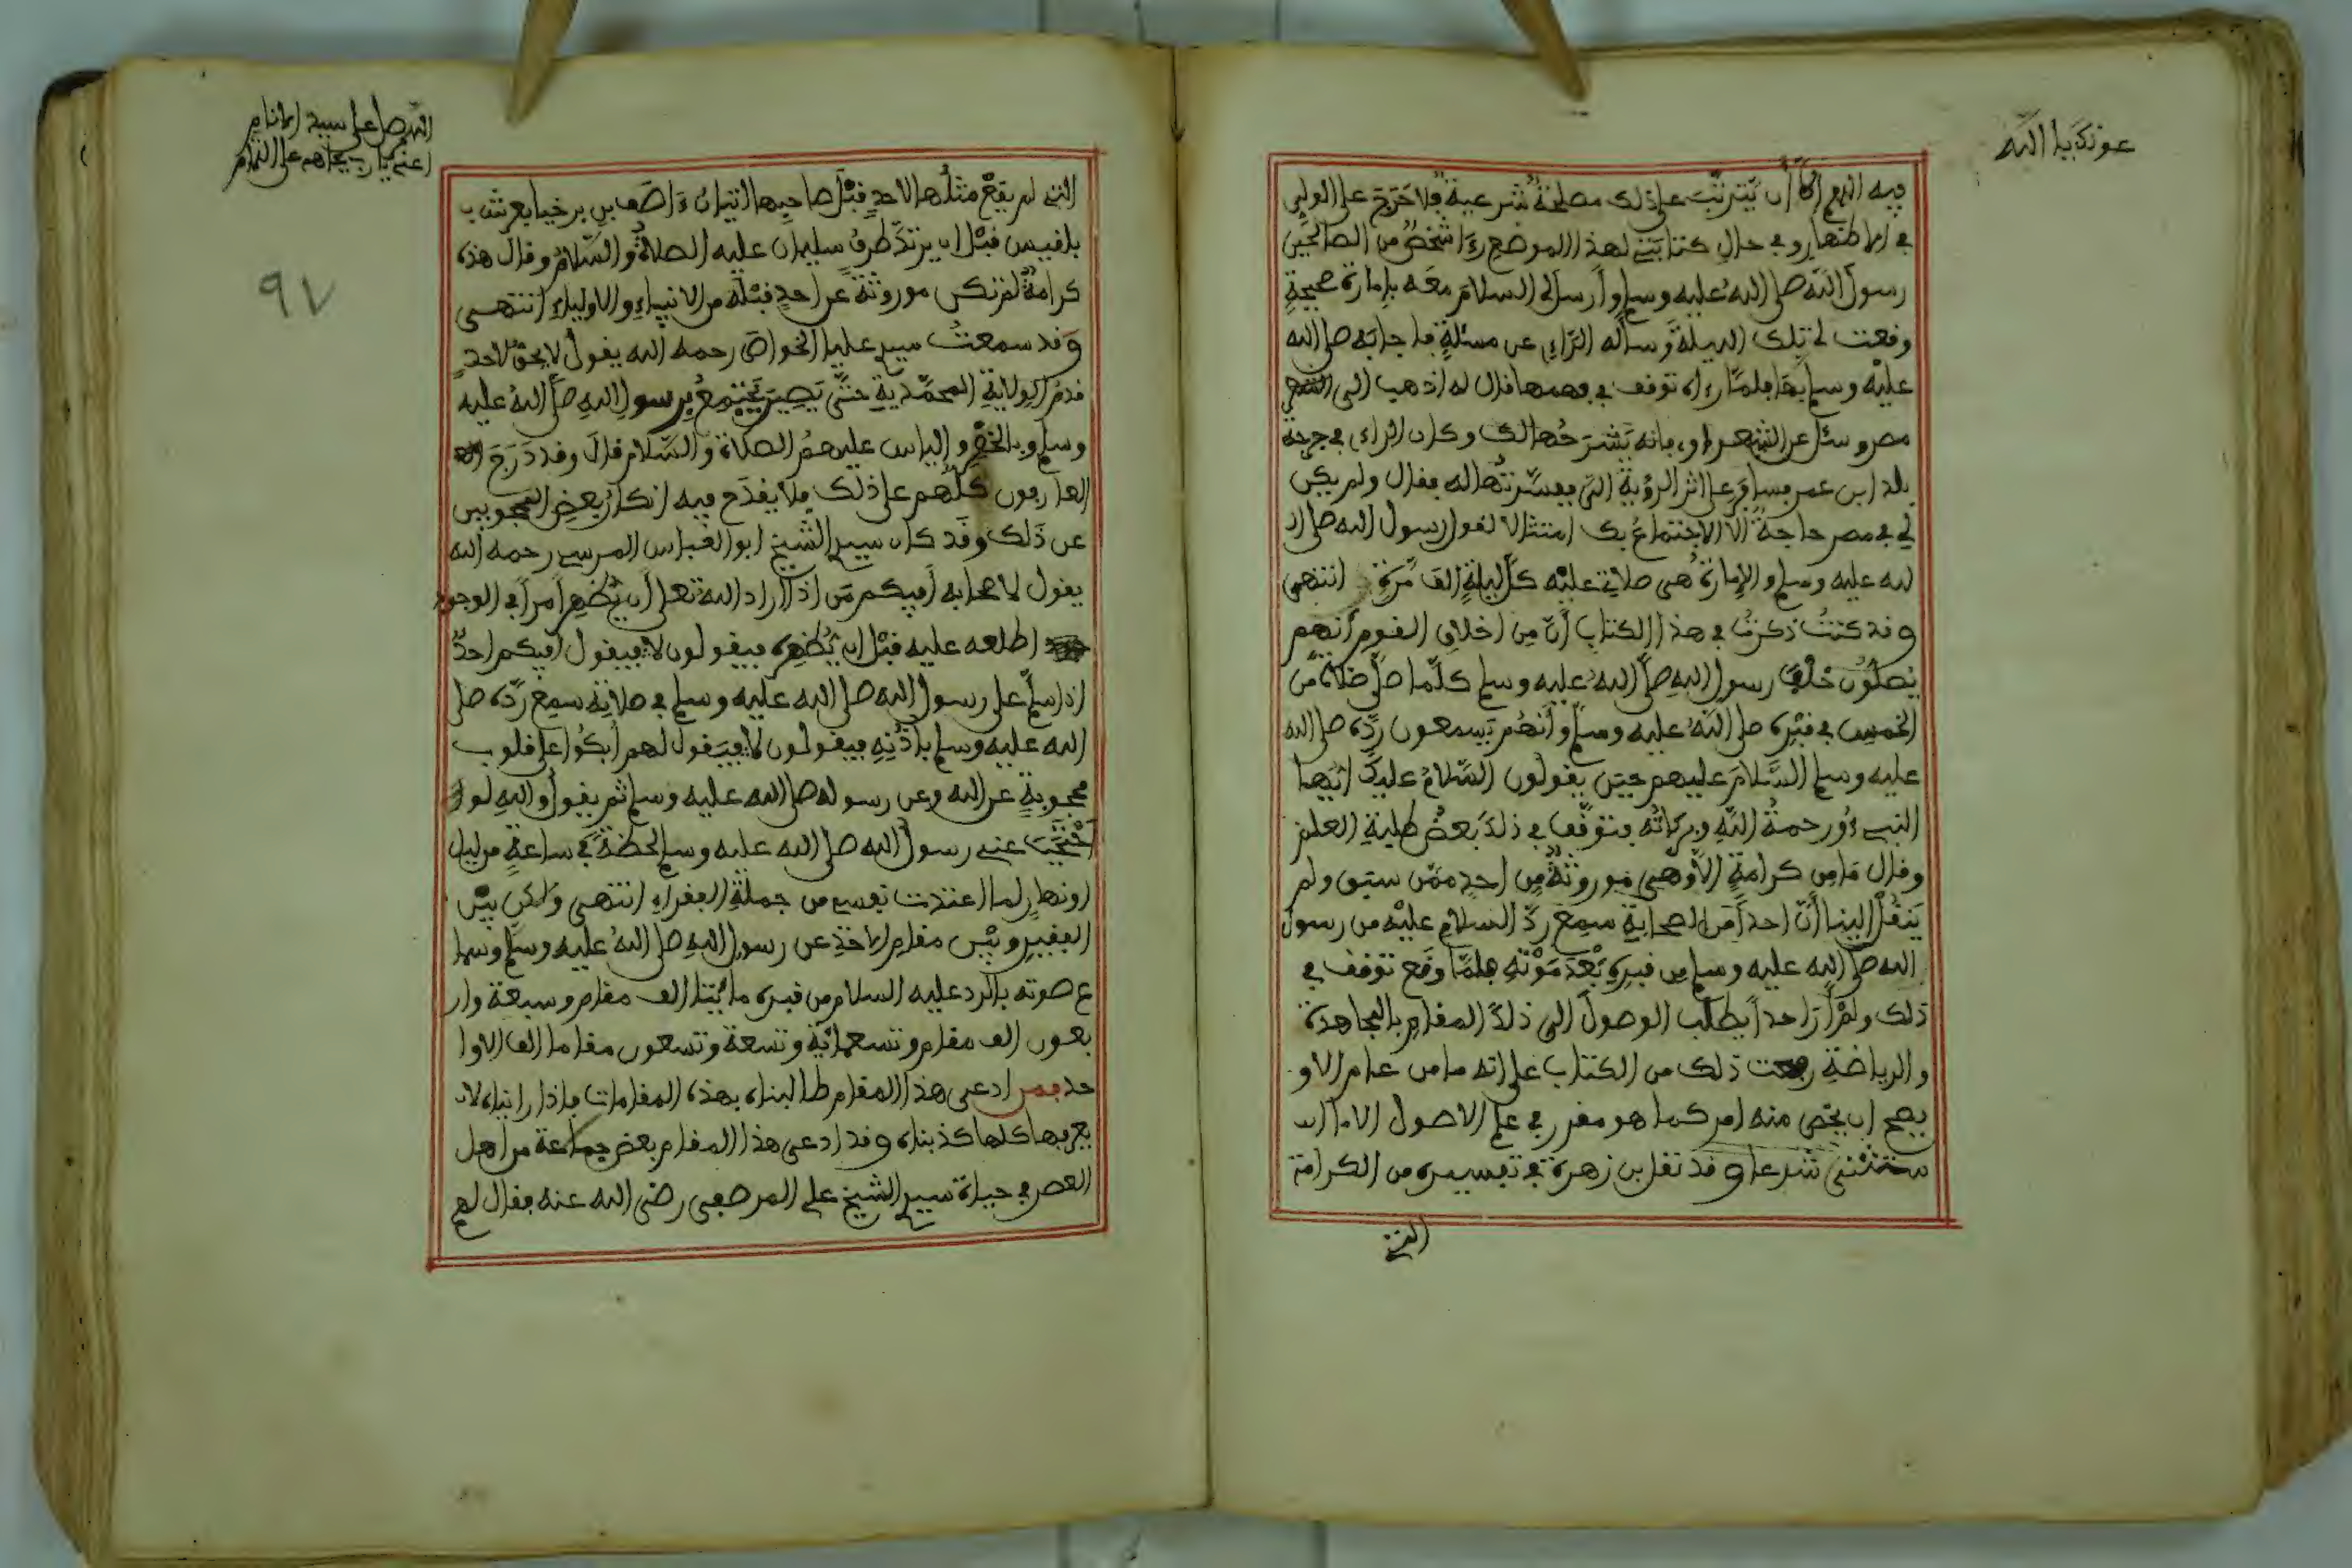 عونك يا الله
فيه اللهم إلا أن يترتب على ذلك مصلحة شرعية فلا حرج على الولي
في إظهارو في حال كتابتي لهذا الموضع رءا شخص من الصالحين
رسول الله صلى الله عليه وسلم وأرسل لي السلام معه بإمارة صحيحة
وقعت لي تلك الليلة وسأله الراءي عن مسئلة فأجابه صلى الله
عليه وسلم بها فلما رءاه توقف في فهمها قال له اذهب إلى
مصر وسئل عن الشعراوي فإنه يشرحها لك وكان الراءي في جرجة
بلد ابن عمر فسافر على اثر الرؤية التي ففسرتها له فقال ولم يكن
لي في مصر حاجة إلا الاجتماع بك امتثالا لقول رسول الله صلى ا
لله عليه وسلم والإمارة هي صلاتي عليه كل ليلة ألف مرة انتهى
وقد كنت ذكرت في هذا الكتاب أن من اخلاق القوم أنهم
يصلون خلف رسول الله صلى الله عليه وسلم كلما صلى صلاة من
الخمس في قبره صلى الله عليه وسلم وأنهم يسمعون رده صلى الله
عليه وسلم السلام عليهم حين يقولون السلام عليك أيها
النبيء ورحمة الله وبركاته فتوقف في ذلك بعض طلبة العلم
وقال ما من كرامة إلا وهي موروثة من احد ممن سبق ولم
ينقل الينا أن احدا من الصحابة سمع رد السلام عليه من رسول
الله صلى الله عليه وسلم من قبره بعد موته فلما وقع توقف في
ذلك ولم أر احدا يطلب الوصول الى ذلك المقام بالمجاهدة
والرياضة رفعت ذلك من الكتاب على انه ما من عام الا و
يصح ان يخص منه امر كما هو مقرر في علم الاصول الا ما ا
ستثني شرعا وقد نقل بن زهرة في تفسيره من الكرامة
التي
اللهم صل على سيد الانام
اعني يا رب بجاههم على التمام
٩٧
التي لم يقع مثلها لاحد قبل صاحبها اتيان ءاصف بن برخيا بعرش
بلقيس قبل ان يرتد طرف سليمان عليه الصلاة والسلام وقال هذه
كرامة لم تكن موروثة عن احد قبله من الانبياء والاولياء انتهى
وقد سمعت سيدي عليا الخواص رحمه الله يقول لا يحق لاحد
قدم الولاية المحمدية حتى يصير يجتمع برسول الله صلى الله عليه
وسلم وبالخضر والياس عليهم الصلاة والسلام قال وقد درج
العارفون كلهم على ذلك فلا يقدح فيه انكار بعض المحجوبين
عن ذلك وقد كان سيدي الشيخ ابو العباس المرسي رحمه الله
يقول لاصحابه أفيكم من اذا أراد الله تعلى أن يظهر امرا في الوجود
اطلعه عليه قبل ان يظهره فيقولون لا فيقول أفيكم احد
اذا سلم على رسول الله صلى الله عليه وسلم في صلاته سمع رده صلى
الله عليه وسلم بأذنه فيقولون لا فيقول لهم أبكوا على قلوب
محجوبة عن الله وعن رسوله صلى الله عليه وسلم ثم يقول والله لو
احتجب عني رسول الله صلى الله عليه وسلم لحظة في ساعة من ليل
او نهار لما اعتددت نفسي من جملة الفقراء انتهى ولكن بين
الفقير وبين مقام الاخذ عن رسول الله صلى الله عليه وسلم وسما
ع صوته بالرد عليه السلام من قبره مائتا الف مقام وسبعة وار
بعون الف مقام وتسعمائة وتسعة وتسعون مقاما الف الاوا
حد فمن ادعى هذا المقام طالبناه بهذه المقامات فاذا رايناه لا
يعرفها كلها كذبناه وقد ادعى هذا المقام بعض جماعة من اهل
العصر في حياة سيدي الشيخ علي المرصفي رضي الله عنه فقال لهم